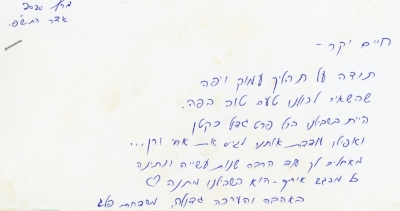 מרץ 2020
אדר התש"פ.
חיים יקר -
תודה על תהליך עמוק ויפה
שהשאיר לכולנו טעם טוב בפה.
היית בשבילנו בכל פרט גדול כקטן
ואפילו עודדת אותנו לגייס את אחי ורן...
מאחלים לך עוד הרבה שנות עשייה ונתינה
כל מפגש איתך - הוא בשבילנו מתנה ♡
באהבה והערכה גדולה, משפחת